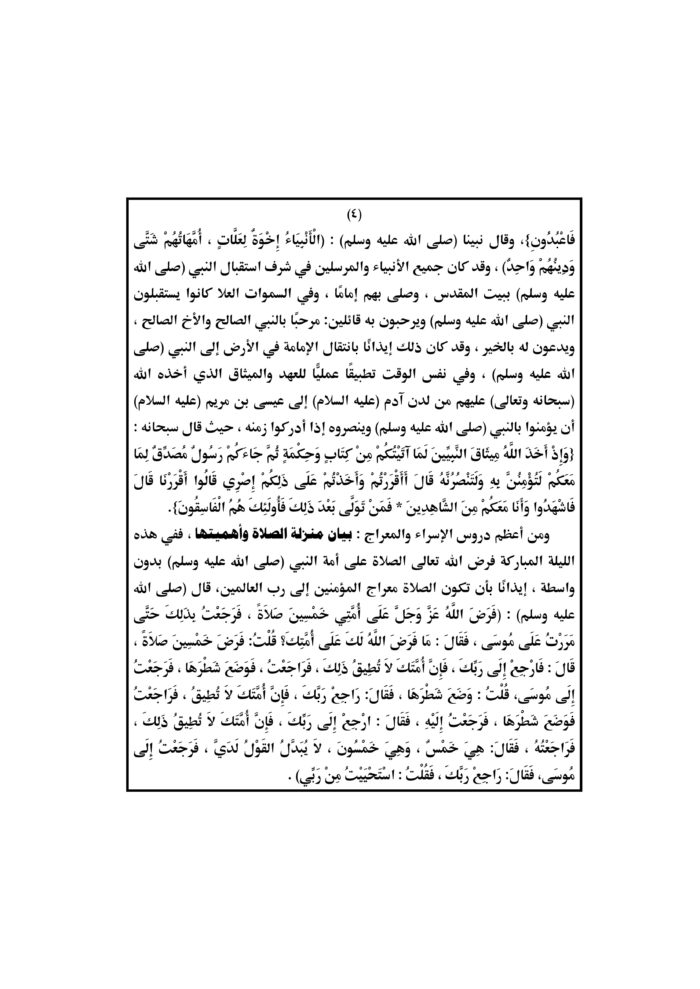 (٤)
فَاعْبُدُونِ}، وقال نبينا (صلى الله عليه وسلم) : (الْأَنْبِيَاءُ إِخْوَةٌ لِعَلَّاتٍ ، أُمَّهَاتُهُمْ شَتَّى
وَدِينُهُمْ وَاحِدٌ) ، وقد كان جميع الأنبياء والمرسلين في شرف استقبال النبي (صلى الله
عليه وسلم) ببيت المقدس ، وصلى بهم إمامًا ، وفي السموات العلا كانوا يستقبلون
النبي (صلى الله عليه وسلم) ويرحبون به قائلين: مرحبًا بالنبي الصالح والأخ الصالح ،
ويدعون له بالخير ، وقد كان ذلك إيذانًا بانتقال الإمامة في الأرض إلى النبي (صلى
الله عليه وسلم) ، وفي نفس الوقت تطبيقًا عمليًّا للعهد والميثاق الذي أخذه الله
(سبحانه وتعالى) عليهم من لدن آدم (عليه السلام) إلى عيسى بن مريم (عليه السلام)
أن يؤمنوا بالنبي (صلى الله عليه وسلم) وينصروه إذا أدركوا زمنه ، حيث قال سبحانه :
{وَإِذْ أَخَذَ اللَّهُ مِيثَاقَ النَّبِيِّينَ لَمَا آتَيْتُكُمْ مِنْ كِتَابٍ وَحِكْمَةٍ ثُمَّ جَاءَكُمْ رَسُولٌ مُصَدِّقٌ لِمَا
مَعَكُمْ لَتُؤْمِنُنَّ بِهِ وَلَتَنْصُرُنَّهُ قَالَ أَأَقْرَرْتُمْ وَأَخَذْتُمْ عَلَى ذَلِكُمْ إِصْرِي قَالُوا أَقْرَرْنَا قَالَ
فَاشْهَدُوا وَأَنَا مَعَكُمْ مِنَ الشَّاهِدِينَ * فَمَنْ تَوَلَّى بَعْدَ ذَلِكَ فَأُولَئِكَ هُمُ الْفَاسِقُونَ}.
ومن أعظم دروس الإسراء والمعراج : بيان منزلة الصلاة وأهميتها ، ففي هذه
الليلة المباركة فرض الله تعالى الصلاة على أمة النبي (صلى الله عليه وسلم) بدون
واسطة ، إيذانًا بأن تكون الصلاة معراج المؤمنين إلى رب العالمين، قال (صلى الله
عليه وسلم) : (فَرَضَ اللَّهُ عَزَّ وَجَلَّ عَلَى أُمَّتِي خَمْسِينَ صَلاَةً ، فَرَجَعْتُ بِذَلِكَ حَتَّى
مَرَرْتُ عَلَى مُوسَى ، فَقَالَ : مَا فَرَضَ اللَّهُ لَكَ عَلَى أُمَّتِكَ؟ قُلْتُ: فَرَضَ خَمْسِينَ صَلاَةً ،
قَالَ : فَارْجِعْ إِلَى رَبِّكَ ، فَإِنَّ أُمَّتَكَ لاَ تُطِيقُ ذَلِكَ ، فَرَاجَعْتُ ، فَوَضَعَ شَطْرَهَا ، فَرَجَعْتُ
إِلَى مُوسَى، قُلْتُ : وَضَعَ شَطْرَهَا ، فَقَالَ: رَاجِعْ رَبَّكَ ، فَإِنَّ أُمَّتَكَ لاَ تُطِيقُ ، فَرَاجَعْتُ
فَوَضَعَ شَطْرَهَا ، فَرَجَعْتُ إِلَيْهِ ، فَقَالَ : ارْجِعْ إِلَى رَبِّكَ ، فَإِنَّ أُمَّتَكَ لاَ تُطِيقُ ذَلِكَ ،
فَرَاجَعْتُهُ ، فَقَالَ: هِيَ خَمْسٌ ، وَهِيَ خَمْسُونَ ، لاَ يُبَدَّلُ القَوْلُ لَدَيَّ ، فَرَجَعْتُ إِلَى
مُوسَى، فَقَالَ: رَاجِعْ رَبَّكَ ، فَقُلْتُ : اسْتَحْيَيْتُ مِنْ رَبِّي) .